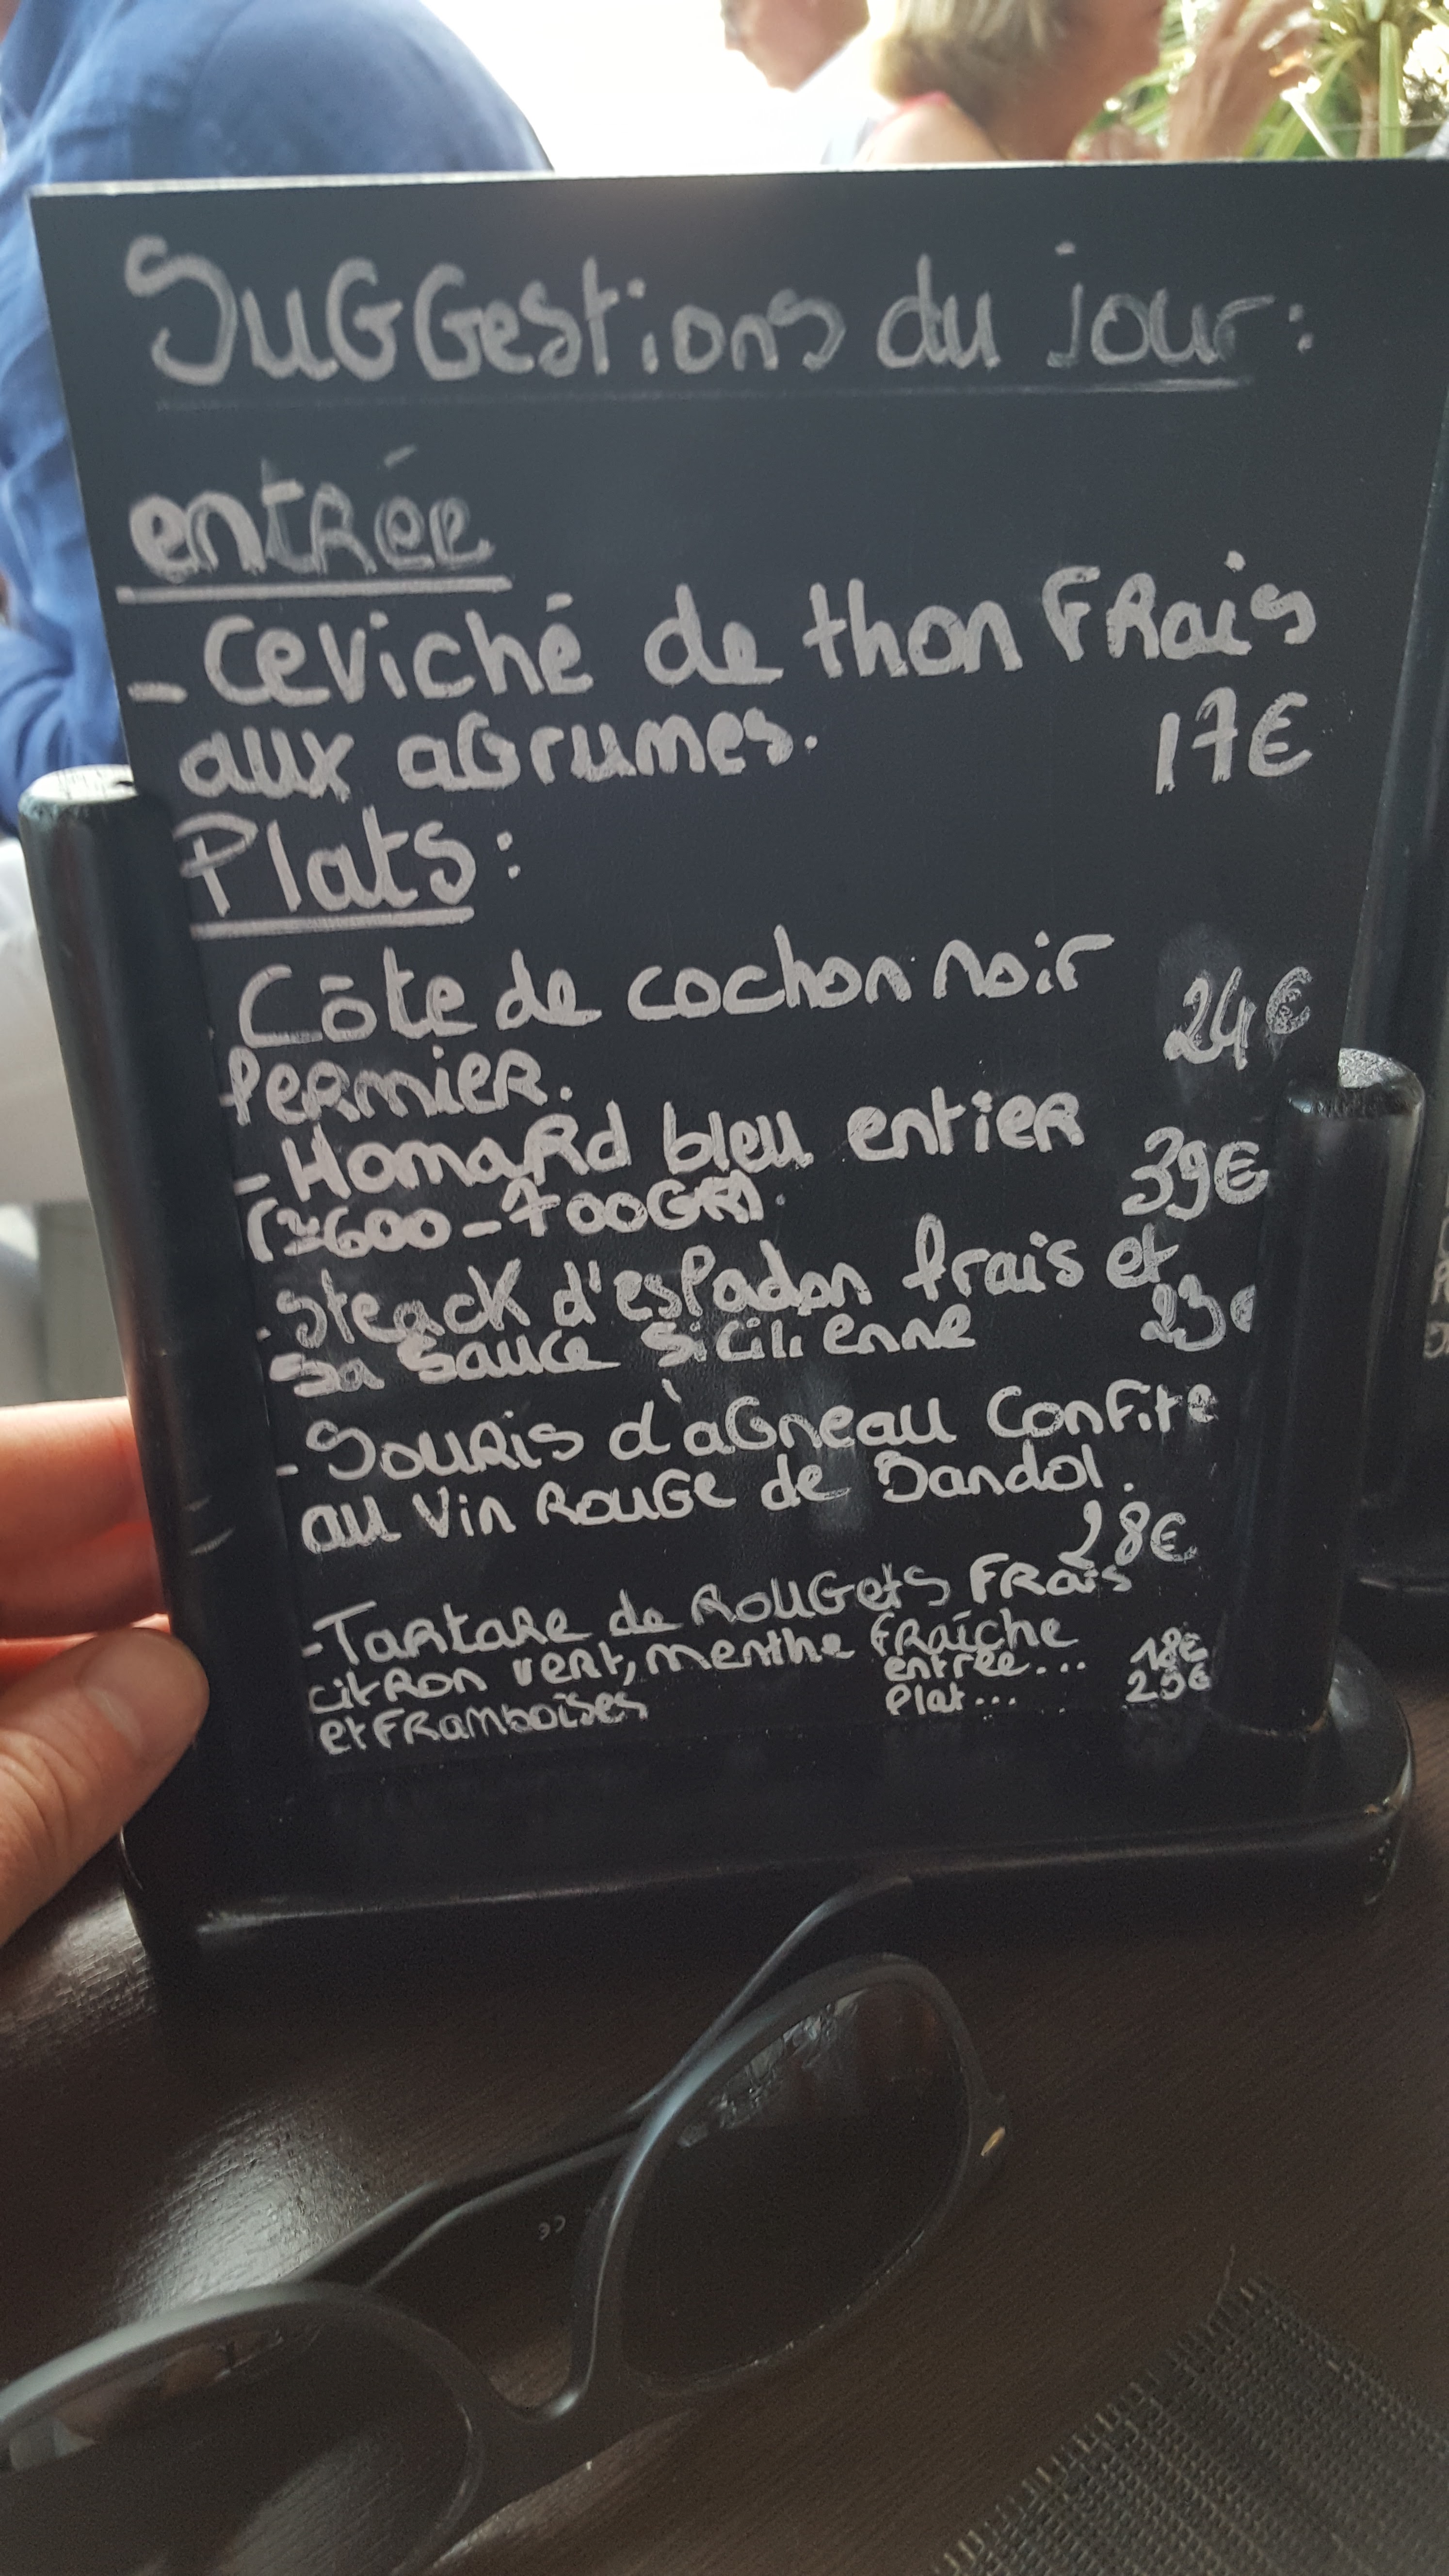 SuGGestions du jour:
entrée
- Ceviché de thon FRais
aux aGrumes. 17€
Plats:
Côte de cochon noir 24€
PERMIER.
- Homard bleu entier
(≃600-700GR). 39€
- Steack d'espadon frais et
sa sauce sicilienne 23€
- Souris d'aGneau ConFite
au Vin RouGe de Bandol.
28€
- Tartare de RouGets FRais
citron vert, menthe FRaîche
entrée... 18€
et FRamboises Plat... 25€
CE